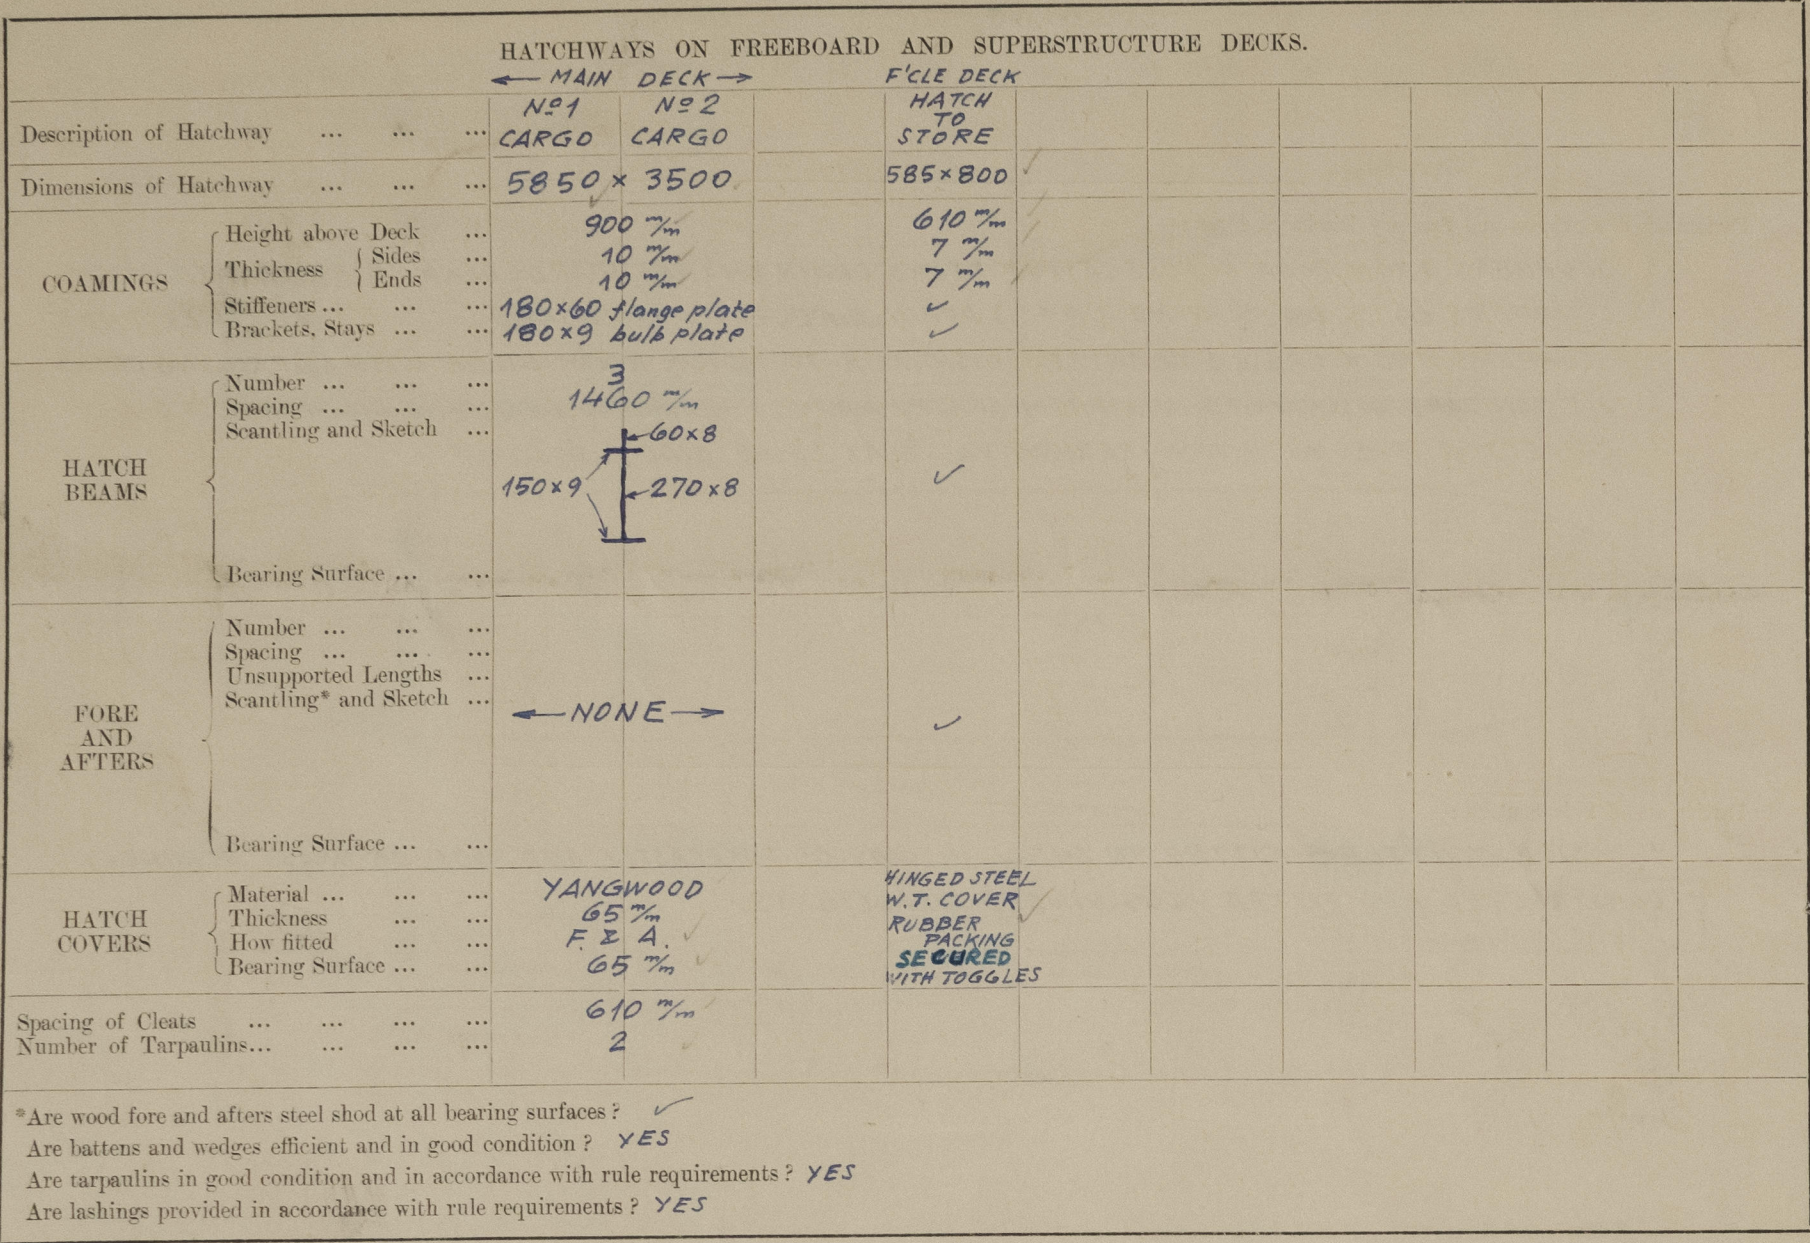 HATCHWAYS ON FREEBOARD AND SUPERSTRUCTURE DECKS.
← MAIN DECK → F'CLE DECK
Description of Hatchway ... ... ... Nº1 CARGO Nº2 CARGO HATCH TO STORE
Dimensions of Hatchway ... ... ... 5850 × 3500 585×800 ✓
COAMINGS
Height above Deck ... 900 m/m 610 m/m
Thickness { Sides ... 10 m/m 7 m/m
Ends ... 10 m/m 7 m/m
Stiffeners ... ... ... 180×60 flange plate ✓
Brackets, Stays ... ... 180×9 bulb plate ✓
HATCH BEAMS
Number ... ... ... 3
Spacing ... ... ... 1460 m/m
Scantling and Sketch ...
60×8
150×9 270×8 ✓
Bearing Surface ... ...
FORE AND AFTERS
Number ... ... ...
Spacing ... ... ...
Unsupported Lengths ...
Scantling* and Sketch ...
← NONE → ✓
Bearing Surface ... ...
HATCH COVERS
Material ... ... ... YANGWOOD HINGED STEEL
W.T. COVER
Thickness ... ... 65 m/m RUBBER
How fitted ... ... F. & A. PACKING
Bearing Surface ... ... 65 m/m SECURED
WITH TOGGLES
Spacing of Cleats ... ... ... ... 610 m/m
Number of Tarpaulins... ... ... ... 2
*Are wood fore and afters steel shod at all bearing surfaces ? ✓
Are battens and wedges efficient and in good condition ? YES
Are tarpaulins in good condition and in accordance with rule requirements ? YES
Are lashings provided in accordance with rule requirements ? YES